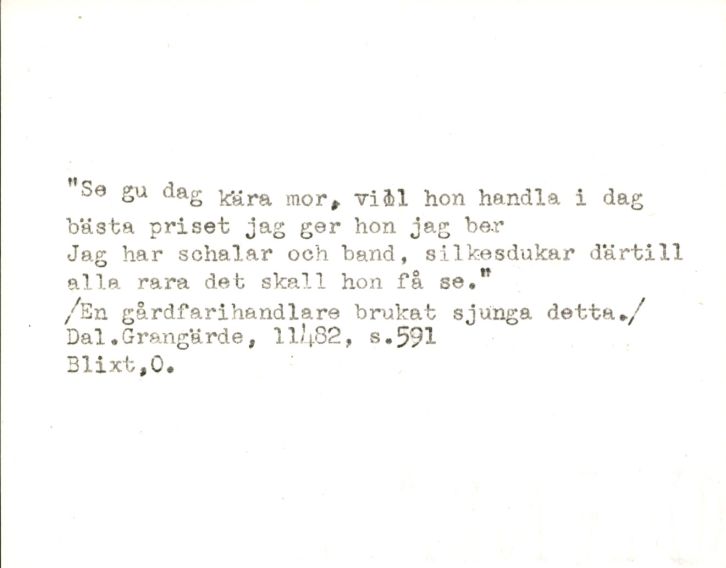 "Se gu dag kära mor, vill hon handla i dag
bästa priset jag ger hon jag ber
Jag har schalar och band, silkesdukar därtill
alla rara det skall hon få se."
/En gårdfarihandlare brukat sjunga detta./
Dal.Grangärde, 11482, s.591
Blixt,O.